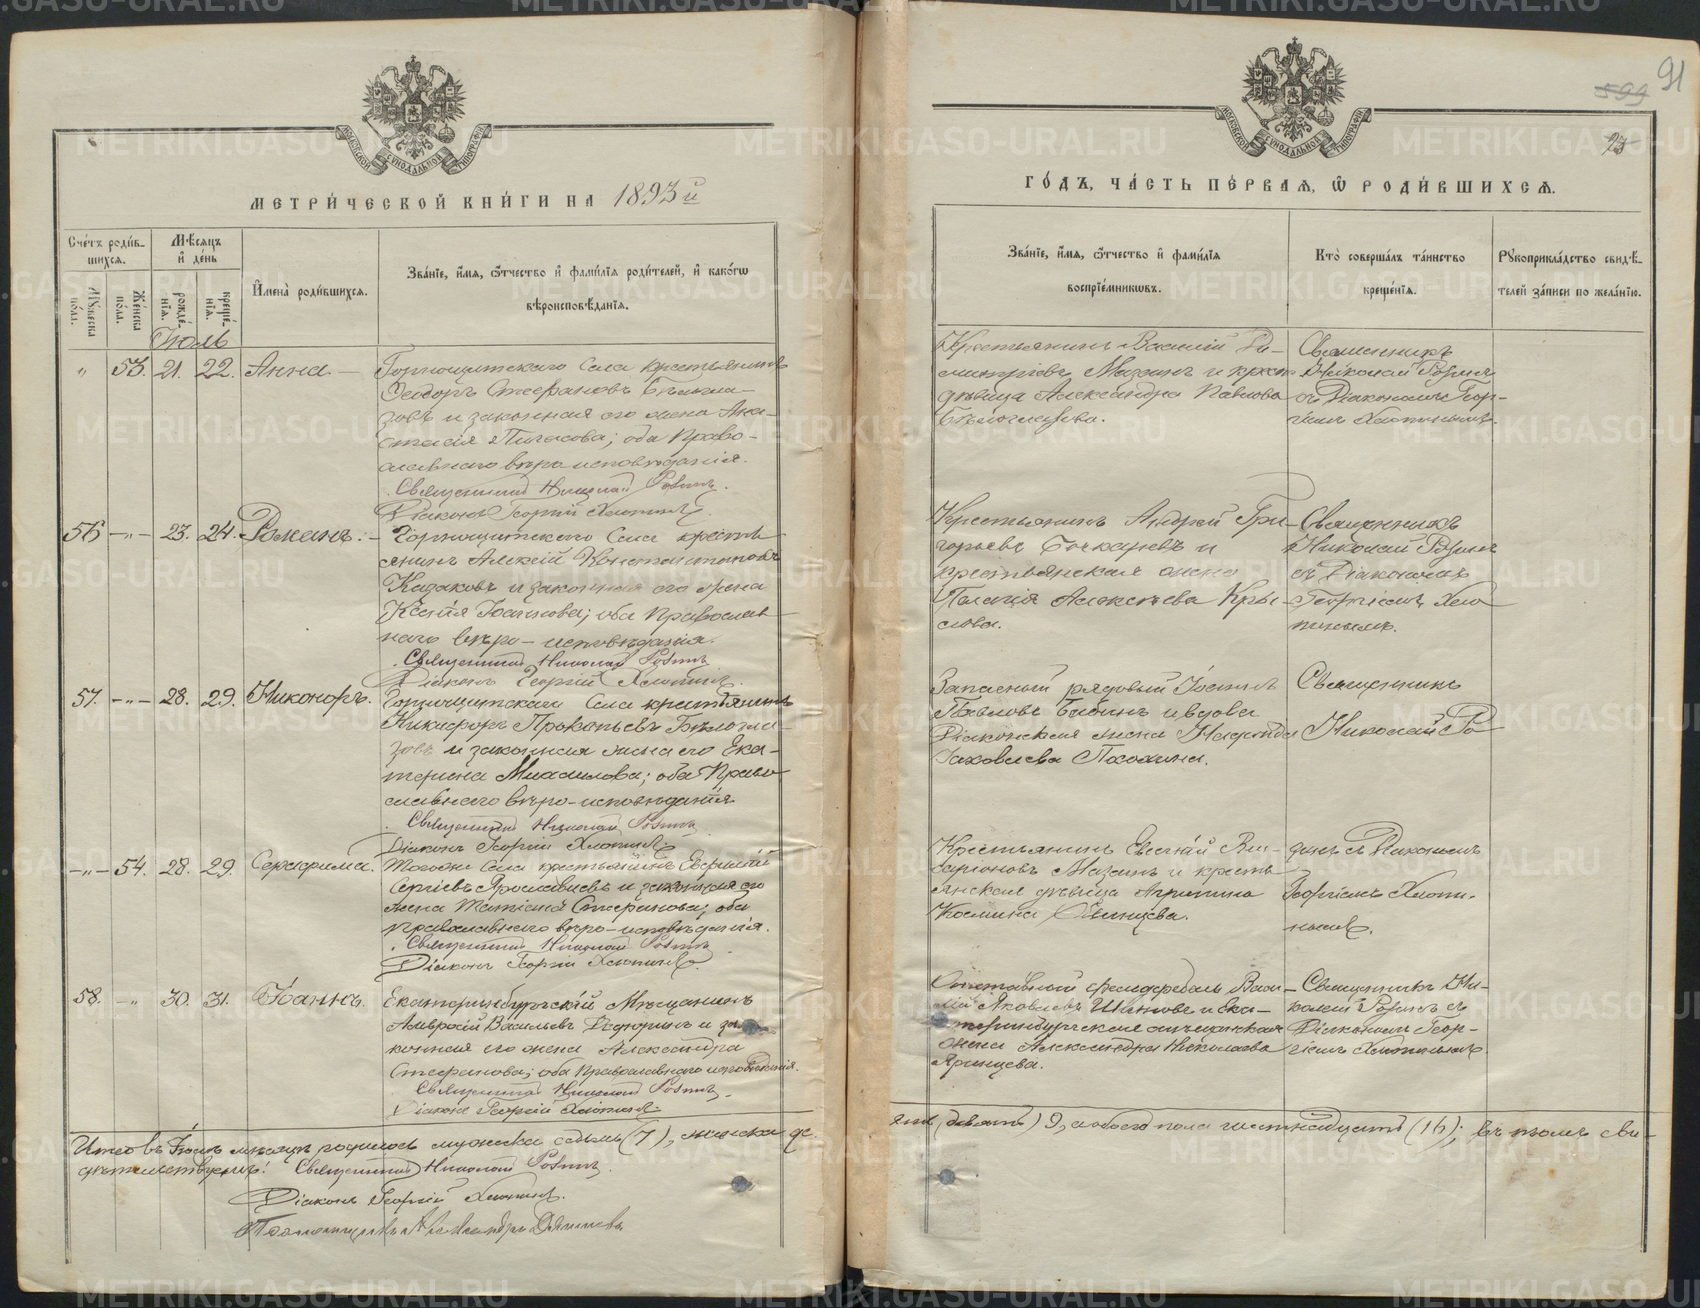 МЕТРИ́ЧЕСКОЙ КНИ́ГИ НА 1893й
Сче́тъ роди́в-
шихся.
Мꙋ́жеска по́ла.
Же́нска по́ла.
Мѣ́сяцъ и де́нь
рожде́нїѧ.
креще́нїѧ.
И҆мена̀ роди́вшихсѧ.
Зва́нїе, и҆́мѧ, ѻ҆́тчество и҆ фами́лїѧ роди́телей, и҆ како́гѡ
вѣроисповѣ́данїѧ.
Іюль
" 53. 21. 22. Анна. —
Горнощитскаго Села крестьянинъ
Ѳеодоръ Стефановъ Бѣлогла-
зовъ и законная его жена Ана-
стасія Пигасова; оба Право-
славнаго вѣроисповѣданія.
Священникъ Николай
Діаконъ Георгій Хлопинъ.
56 —"— 23. 24. Романъ. —
Горнощитскаго Села кресть
янинъ Алексій Константиновъ
Кадаковъ и законная его жена
Ксенія Іоаннова; оба Православ
наго вѣро-исповѣданія.
Священникъ Николай
Діаконъ Георгій Хлопинъ.
57. —"— 28. 29. Никоноръ.
Горнощитскаго Села крестьянинъ
Никифоръ Прокопьевъ Бѣлогла-
зовъ и законная жена его Ека-
терина Михаилова; оба Право
славнаго вѣро-исповѣданія
Священникъ Николай
Діаконъ Георгій Хлопинъ
—"— 54. 28. 29. Серафима.
Тогоже Села крестьянинъ Евфимій
Сергіевъ Ярославцевъ и законная его
жена Татіана Стефанова; оба
православнаго вѣро-исповѣданія.
Священникъ Николай
Діаконъ Георгій Хлопинъ.
58. —" 30. 31. Іоаннъ.
Екатеринбургскій Мѣщанинъ
Амвросій Васильевъ и за
конная его жена Александра
Стефанова; оба Православнаго исповѣданія.
Священникъ Николай
Діаконъ Георгій Хлопинъ
Итого въ Іюлѣ мѣсяцѣ родилось мужеска седмь (7), женска де-
дѣтельствуемъ: Священникъ Николай
Діаконъ Георгій Хлопинъ.
Александръ
91
599
93
ГО́ДЪ, ЧА́СТЬ ПЕ́РВАЯ, Ѡ҆ РОДИ́ВШИХСѦ.
Зва́нїе, и҆́мѧ, ѻ҆́тчество и҆ фами́лїѧ
воспрїе́мникѡвъ.
Кто̀ соверша́лъ та́инство
креще́нїѧ.
Рꙋкоприкла́дство свидѣ́-
телей за́писи по жела́нїю.
Крестьянинъ Василій Ди-
митріевъ Мазеинъ и крест
дѣвица Александра Павлова
Бѣлоглазова.
Священникъ
Николай
съ Діакономъ Геор-
гіемъ Хлопинымъ.
Крестьянинъ Андрей Гри-
горьевъ и
крестьянская жена
Пелагія Алексѣева Кры-
лова.
Священникъ
Николай
съ Діакономъ
Георгіемъ Хло
пинымъ.
Запасный рядовый Іоаннъ
Павловъ Бабинъ и вдова
Діаконская жена
Іаковлева
Священникъ
Николай Ро
Крестьянинъ Евгеній Ви-
саріоновъ Мазеинъ и кресть
янская дѣвица Агрипина
Козмина Одинцева.
съ Діакономъ
Георгіемъ Хлопи-
нымъ.
Отставной фельдфебель Васи-
лій Яковлевъ и Ека-
теринбургская мѣщанская
жена Александра Николаева
Священникъ Ни-
колай съ
Діакономъ Геор-
гіемъ Хлопинымъ.
вять (девять) 9, а обоего пола шестнадцать (16); въ томъ сви-
METRIKI.GASO-URAL.RU